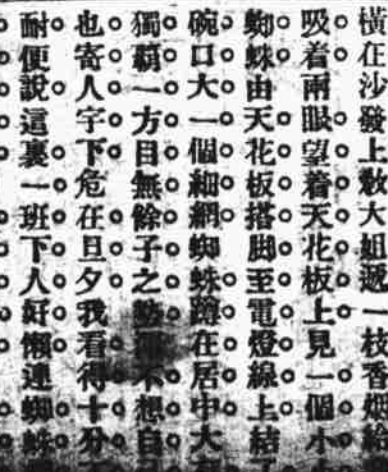 橫在沙發上敎大姐遞一枝香烟給
吸着兩眼望着天花板上見一個小
蜘蛛由天花板搭脚至電燈線上結
碗口大一個細網蜘蛛蹲在居中大
獨霸一方目無餘子之勢不想自
也寄人字下危在旦夕我看得十分
耐便說這裏一班下人好懶連蜘蛛